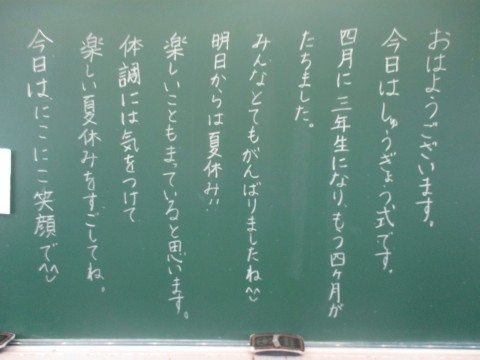 おはようございます。
今日はしゅうぎょう式です。
四月に三年生になり、もう四ヶ月が
たちました。
みんなとてもがんばりましたね^^
明日からは夏休み!!
楽しいこともまっていると思います。
体調には気をつけて
楽しい夏休みをすごしてね。
今日は、にこにこ笑顔で^^